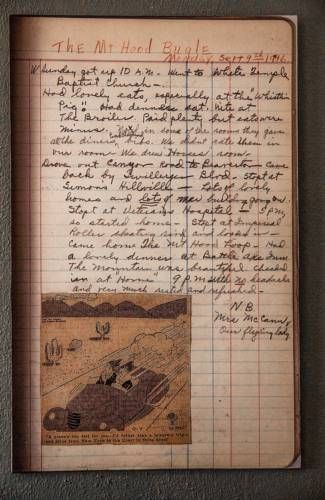 The Mt Hood Bugle
Monday, Sept 9th 1946.
Sunday got up 10 A.M. Went to White Temple
Baptist Church —
Had lovely eats, especially at the "Whistlin
Pig" Had dinners eat. Nite at
The Broiler. Paid plenty but eats were
in some of the rooms they gave
all the diners, bibs. We didn't rate them in
our room. We drew Horses room.
Drove out Canyon Road to Beaverton - Came
back by Terwilleger - Blvd. - Stopt at
Simons Hillvilla - Lots of lovely
homes and lots of new building going on.
Stopt at Veterans Hospital - 5 P.M.
so started home - Stopt at Imperial
Roller skating rink and looked in -
Came home The Mt Hood Loop - Had
a lovely dinner at Battle Axe Inn
The Mountain was beautiful. Checked
in at Home 9 P.M. with no headache
and very much rested and refreshed -
N B
Mrs McCann,
Our flying lady